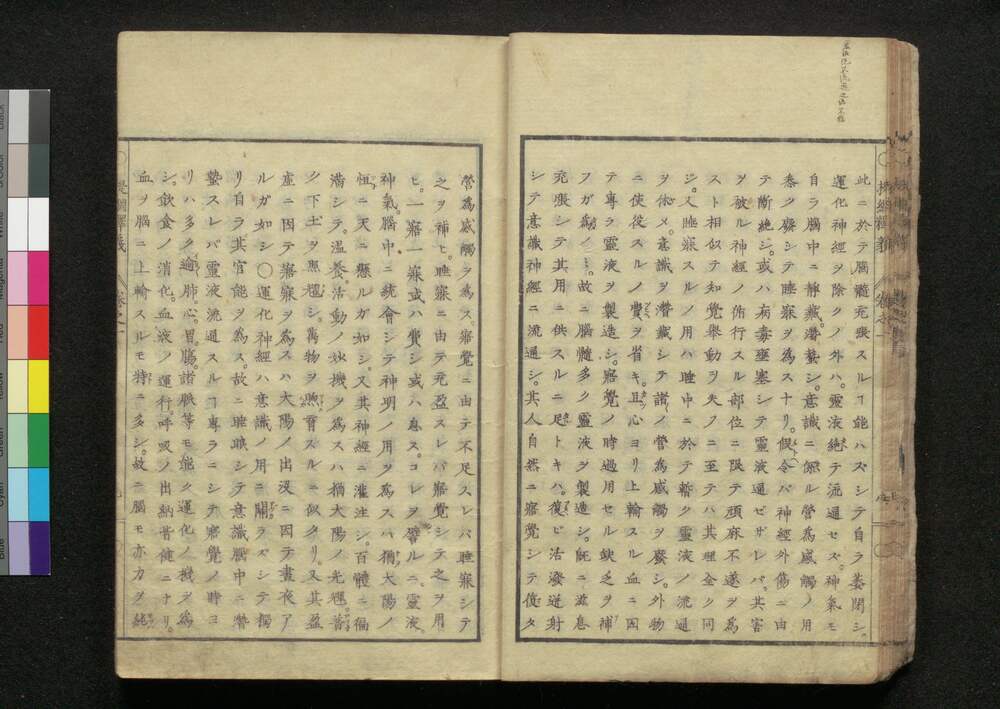 此ニ於テ腦髓充張スルヿ能ハズシテ自ラ萎閉シ。
運化神經ヲ除クノ外ハ。靈液絶テ流通セズ。神氣モ
自ラ腦中ニ靜藏潛蟄シ。意識ニ係ル營爲感觸ノ用
泰ク廢シテ睡寐ヲ爲スナリ。假令バ神經外傷ニ由
テ斷絶シ。或ハ病毒壅塞シテ靈液通ゼザレバ。其害
ヲ被ル神經ノ俯行スル部位ニ限テ頑麻不遂ヲ爲
スト相似テ知覺舉動ヲ失フニ至テハ其理全ク同
シ。又睡寐スルノ用ハ睡中ニ於テ暫ク靈液ノ流通
ヲ休メ。意識ヲ潛藏シテ諸ノ營爲感觸ヲ廢シ。外物
ニ使役スルノ費ヲ省キ。且心ヨリ上輸スル血ニ因
テ專ラ靈液ヲ製造シ。寤覺ノ時過用セル缺乏ヲ補
フガ爲ノミ。故ニ腦髓多ク靈液ヲ製造シ。既ニ滋息
充張シテ其用ニ供スルニ足トキハ。復ビ活潑迸射
シテ意識神經ニ流通シ。其人自然ニ寤覺シテ復タ
營爲感觸ヲ爲ス寤覺ニ由テ不足スレバ睡寐シテ
之ヲ補ヒ。睡寐ニ由テ充盈スレバ寤覺シテ之ヲ用
ヒ。一寤一寐或ハ費シ或ハ息ス。コレヲ譬ルニ。靈液
神氣腦中ニ統會シテ神明ノ用ヲ爲スハ猶大陽ノ
恒ニ天ニ懸ルガ如シ。又其神經ニ灌注シ。百體ニ福
滿シテ。溫養。活動ノ妙機ヲ爲スハ猶大陽ノ光輝。普
ク下土ヲ照耀シ。萬物ヲ煦育スルニ似タリ。又其盈
虛ニ因テ寤寐ヲ爲スハ大陽ノ出沒ニ因テ晝夜ア
ルガ如シ〇運化神經ハ意識ノ用ニ關ラズシテ獨
リ自ラ其官能ヲ爲ス。故ニ睡眠シテ意識腦中ニ潛
蟄スレバ靈液流通スルヿ專ラニシテ寤覺ノ時ヨ
リハ多ク逾ユ。肺心胃腸。諸脈等モ能ク運化ノ機ヲ爲
シ。飲食ノ消化。血液ノ運行。呼吸ノ出納皆健ニナリ。
血ヲ腦ニ上輸スルモ特ニ多シ。故ニ腦モ亦力ヲ純